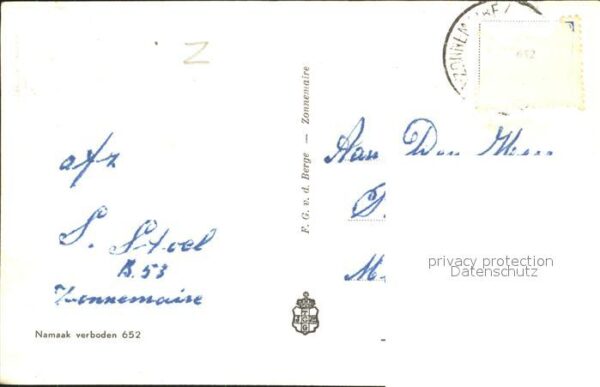 Z
ZONNEMAIRE
652
afz
S. Stoel
B. 53
Zonnemaire
Namaak verboden 652
F. G. v. d. Berge — Zonnemaire
Aan Den Heer
S.
M.
privacy protection
Datenschutz